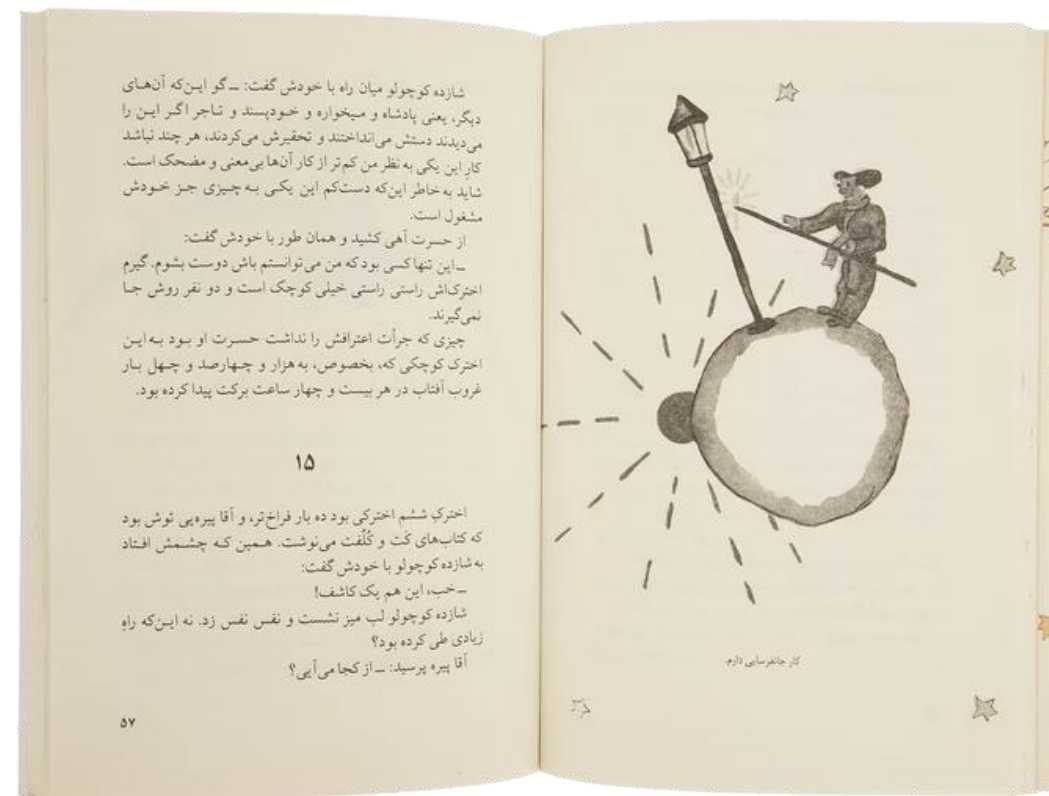 شازده کوچولو میان راه با خودش گفت: ــ گو این‌که آن‌های
دیگر، یعنی پادشاه و میخواره و خودپسند و تاجر اگر این را
می‌دیدند دستش می‌انداختند و تحقیرش می‌کردند، هر چند نباشد
کارِ این یکی به نظر من کم‌تر از کار آن‌ها بی‌معنی و مضحک است.
شاید به خاطر این‌که دست‌کم این یکی به چیزی جز خودش
مشغول است.
از حسرت آهی کشید و همان طور با خودش گفت:
ــ این تنها کسی بود که من می‌توانستم باش دوست بشوم. گیرم
اخترک‌اش راستی راستی خیلی کوچک است و دو نفر روش جا
نمی‌گیرند.
چیزی که جرأت اعترافش را نداشت حسرت او بود به این
اخترک کوچکی که، بخصوص، به هزار و چهارصد و چهل بار
غروب آفتاب در هر بیست و چهار ساعت برکت پیدا کرده بود.
۱۵
اخترکِ ششم اخترکی بود ده بار فراخ‌تر، و آقا پیره‌یی توش بود
که کتاب‌های کَت و کُلُفت می‌نوشت. همین که چشمش افتاد
به شازده کوچولو با خودش گفت:
ــ خب، این هم یک کاشف!
شازده کوچولو لب میز نشست و نفس نفس زد. نه این‌که راهِ
زیادی طی کرده بود؟
آقا پیره پرسید: ــ از کجا می‌آیی؟
۵۷
کار جانفرسایی دارم.